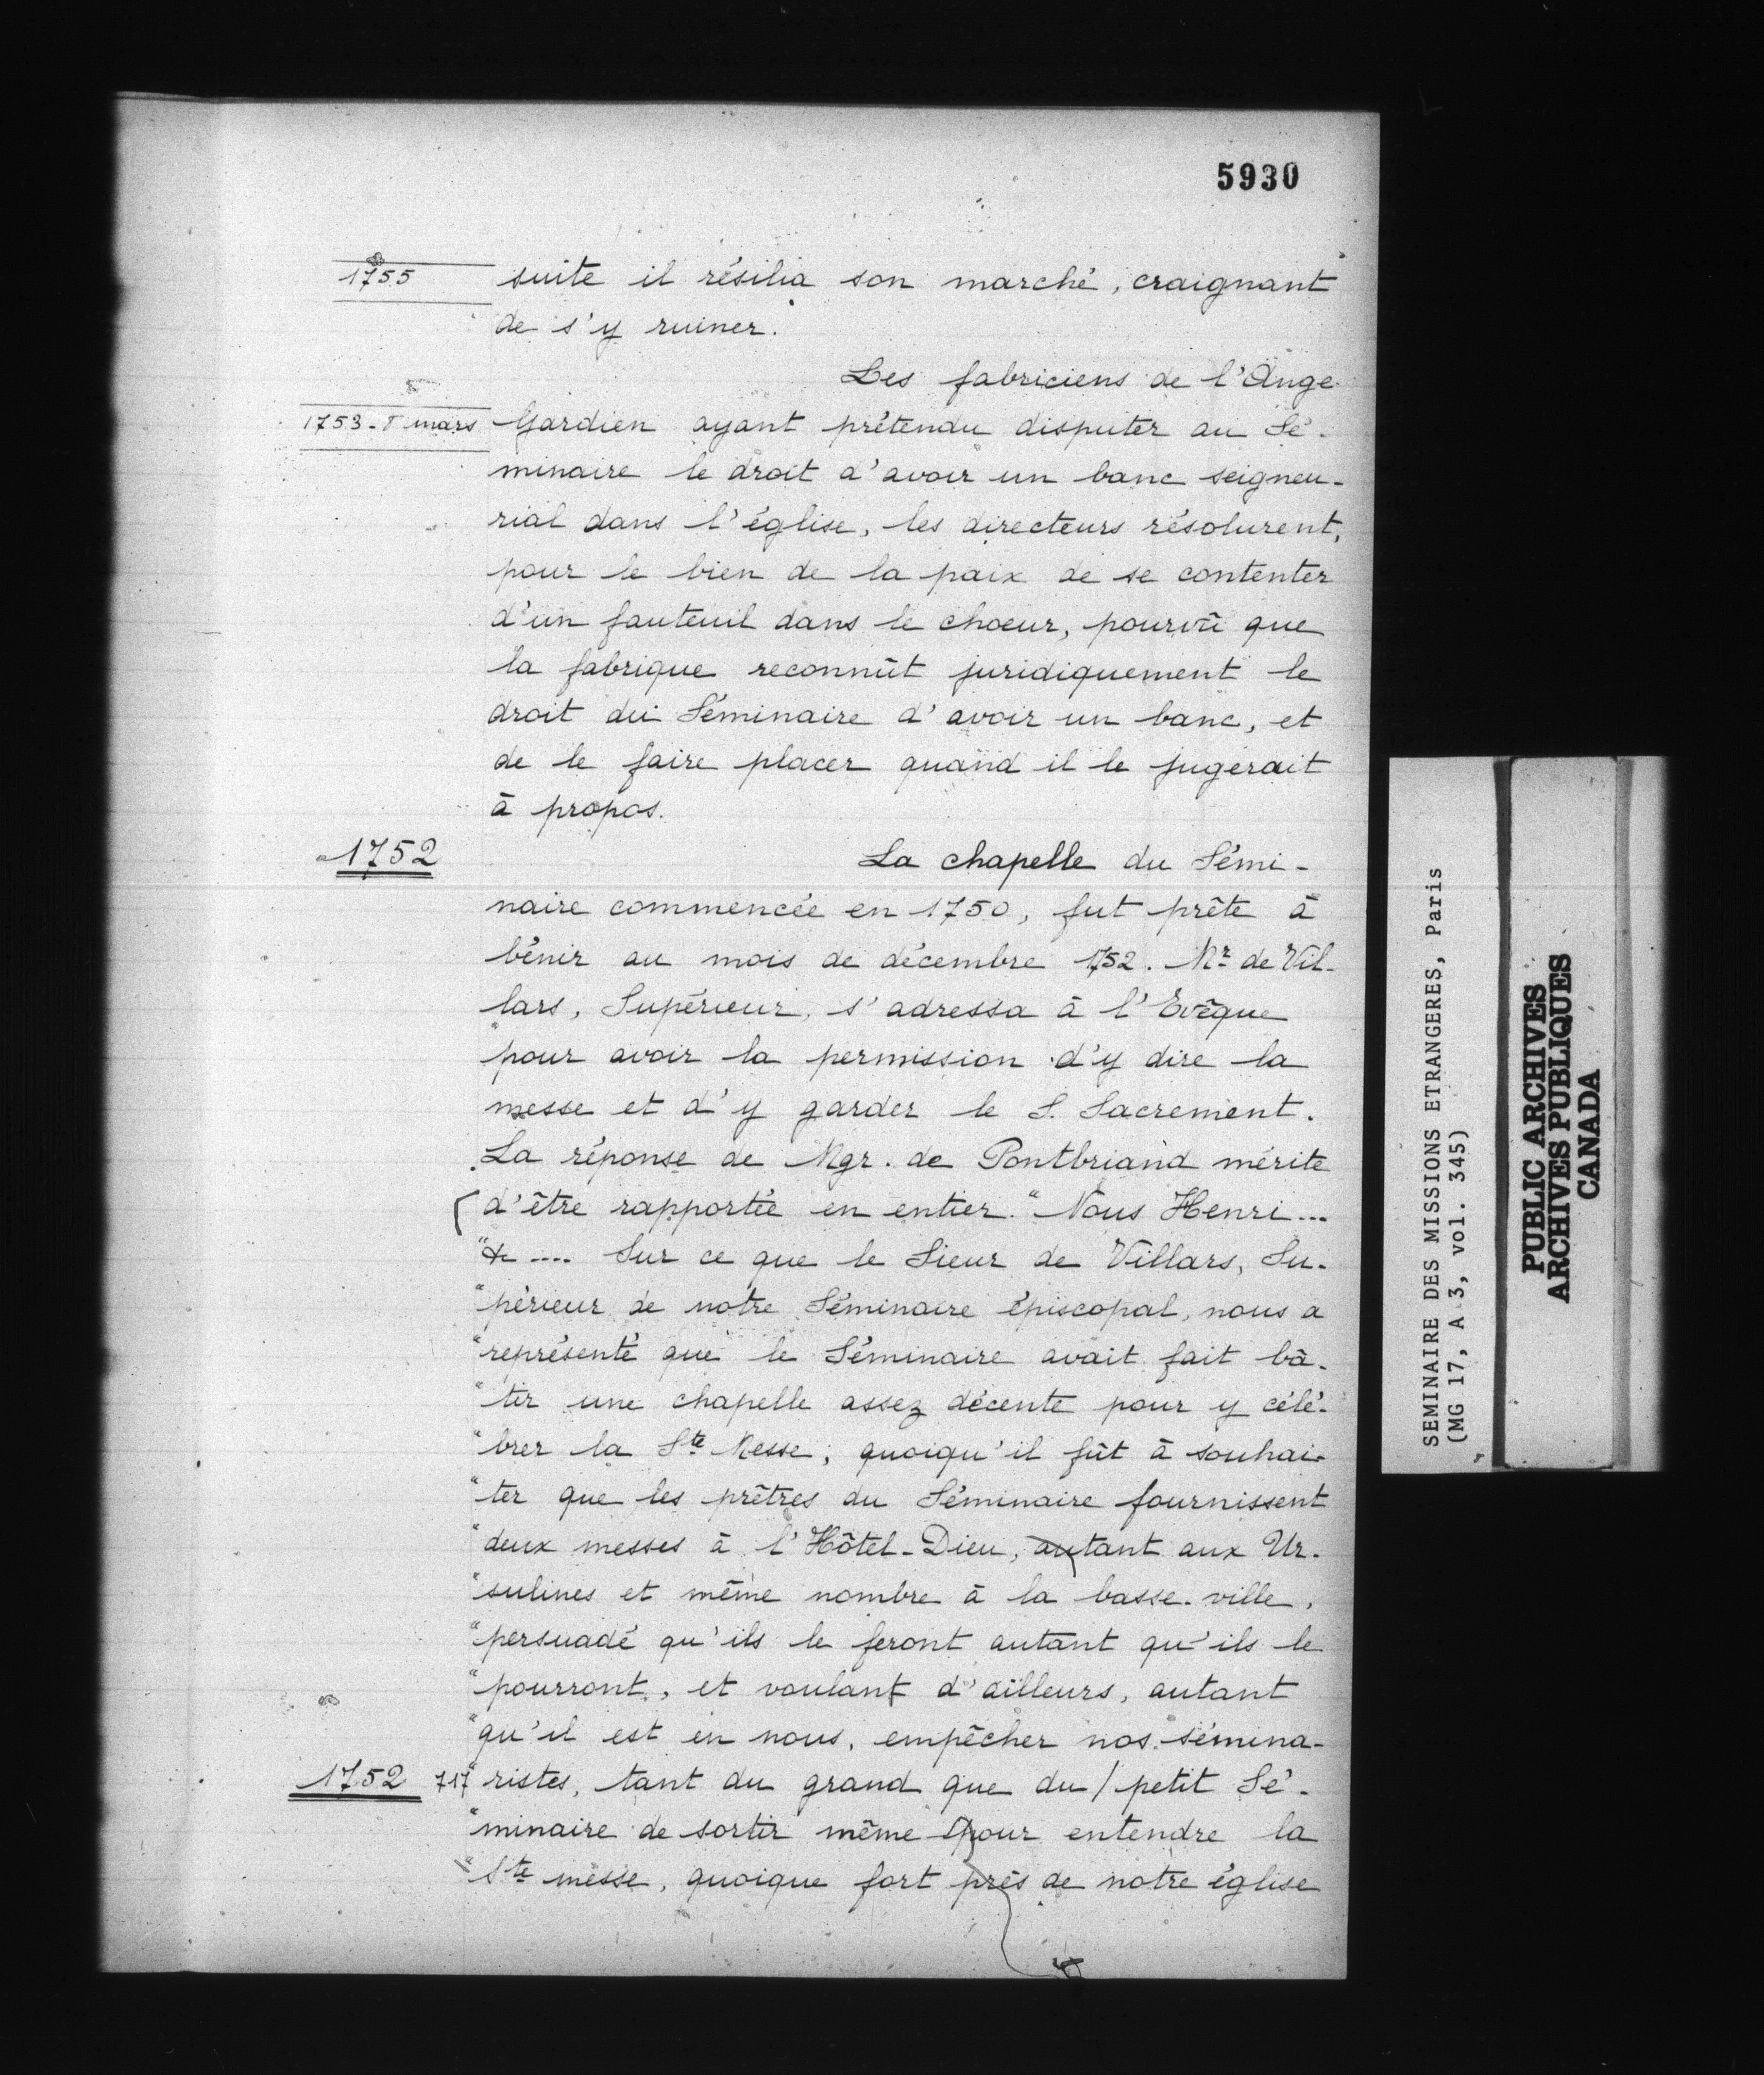 5930
1755 suite il résilia son marché, craignant
de s'y ruiner.
Les fabriciens de l'Ange
1753 - 8 mars Gardien ayant prétendu disputer au Sé-
minaire le droit d'avoir un banc seigneu-
rial dans l'église, les directeurs résolurent,
pour le bien de la paix de se contenter
d'un fauteuil dans le choeur, pourvû que
la fabrique reconnût juridiquement le
droit du Séminaire d'avoir un banc, et
de le faire placer quand il le jugerait
à propos.
1752 La chapelle du Sémi-
naire commencée en 1750, fut prête à
bénir au mois de décembre 1752. Mr de Vil-
lars, Supérieur, s'adressa à l'Evêque
pour avoir la permission d'y dire la
messe et d'y garder le S. Sacrement.
La réponse de Mgr. de Pontbriand mérite
d'être rapportée en entier. "Nous Henri...
"& .... Sur ce que le Sieur de Villars, Su-
"périeur de notre Séminaire épiscopal, nous a
"représenté que le Séminaire avait fait bâ-
"tir une chapelle assez décente pour y célé-
"brer la Ste Messe; quoiqu'il fût à souhai-
"ter que les prêtres du Séminaire fournissent
"deux messes à l'Hôtel-Dieu, autant aux Ur-
"sulines et même nombre à la basse-ville,
"persuadé qu'ils le feront autant qu'ils le
"pourront, et voulant d'ailleurs, autant
"qu'il est en nous, empêcher nos sémina-
1752 717 "ristes, tant du grand que du / petit Sé-
"minaire de sortir même pour entendre la
"Ste messe, quoique fort près de notre église
SEMINAIRE DES MISSIONS ETRANGERES, Paris
(MG 17, A 3, vol. 345)
PUBLIC ARCHIVES
ARCHIVES PUBLIQUES
CANADA